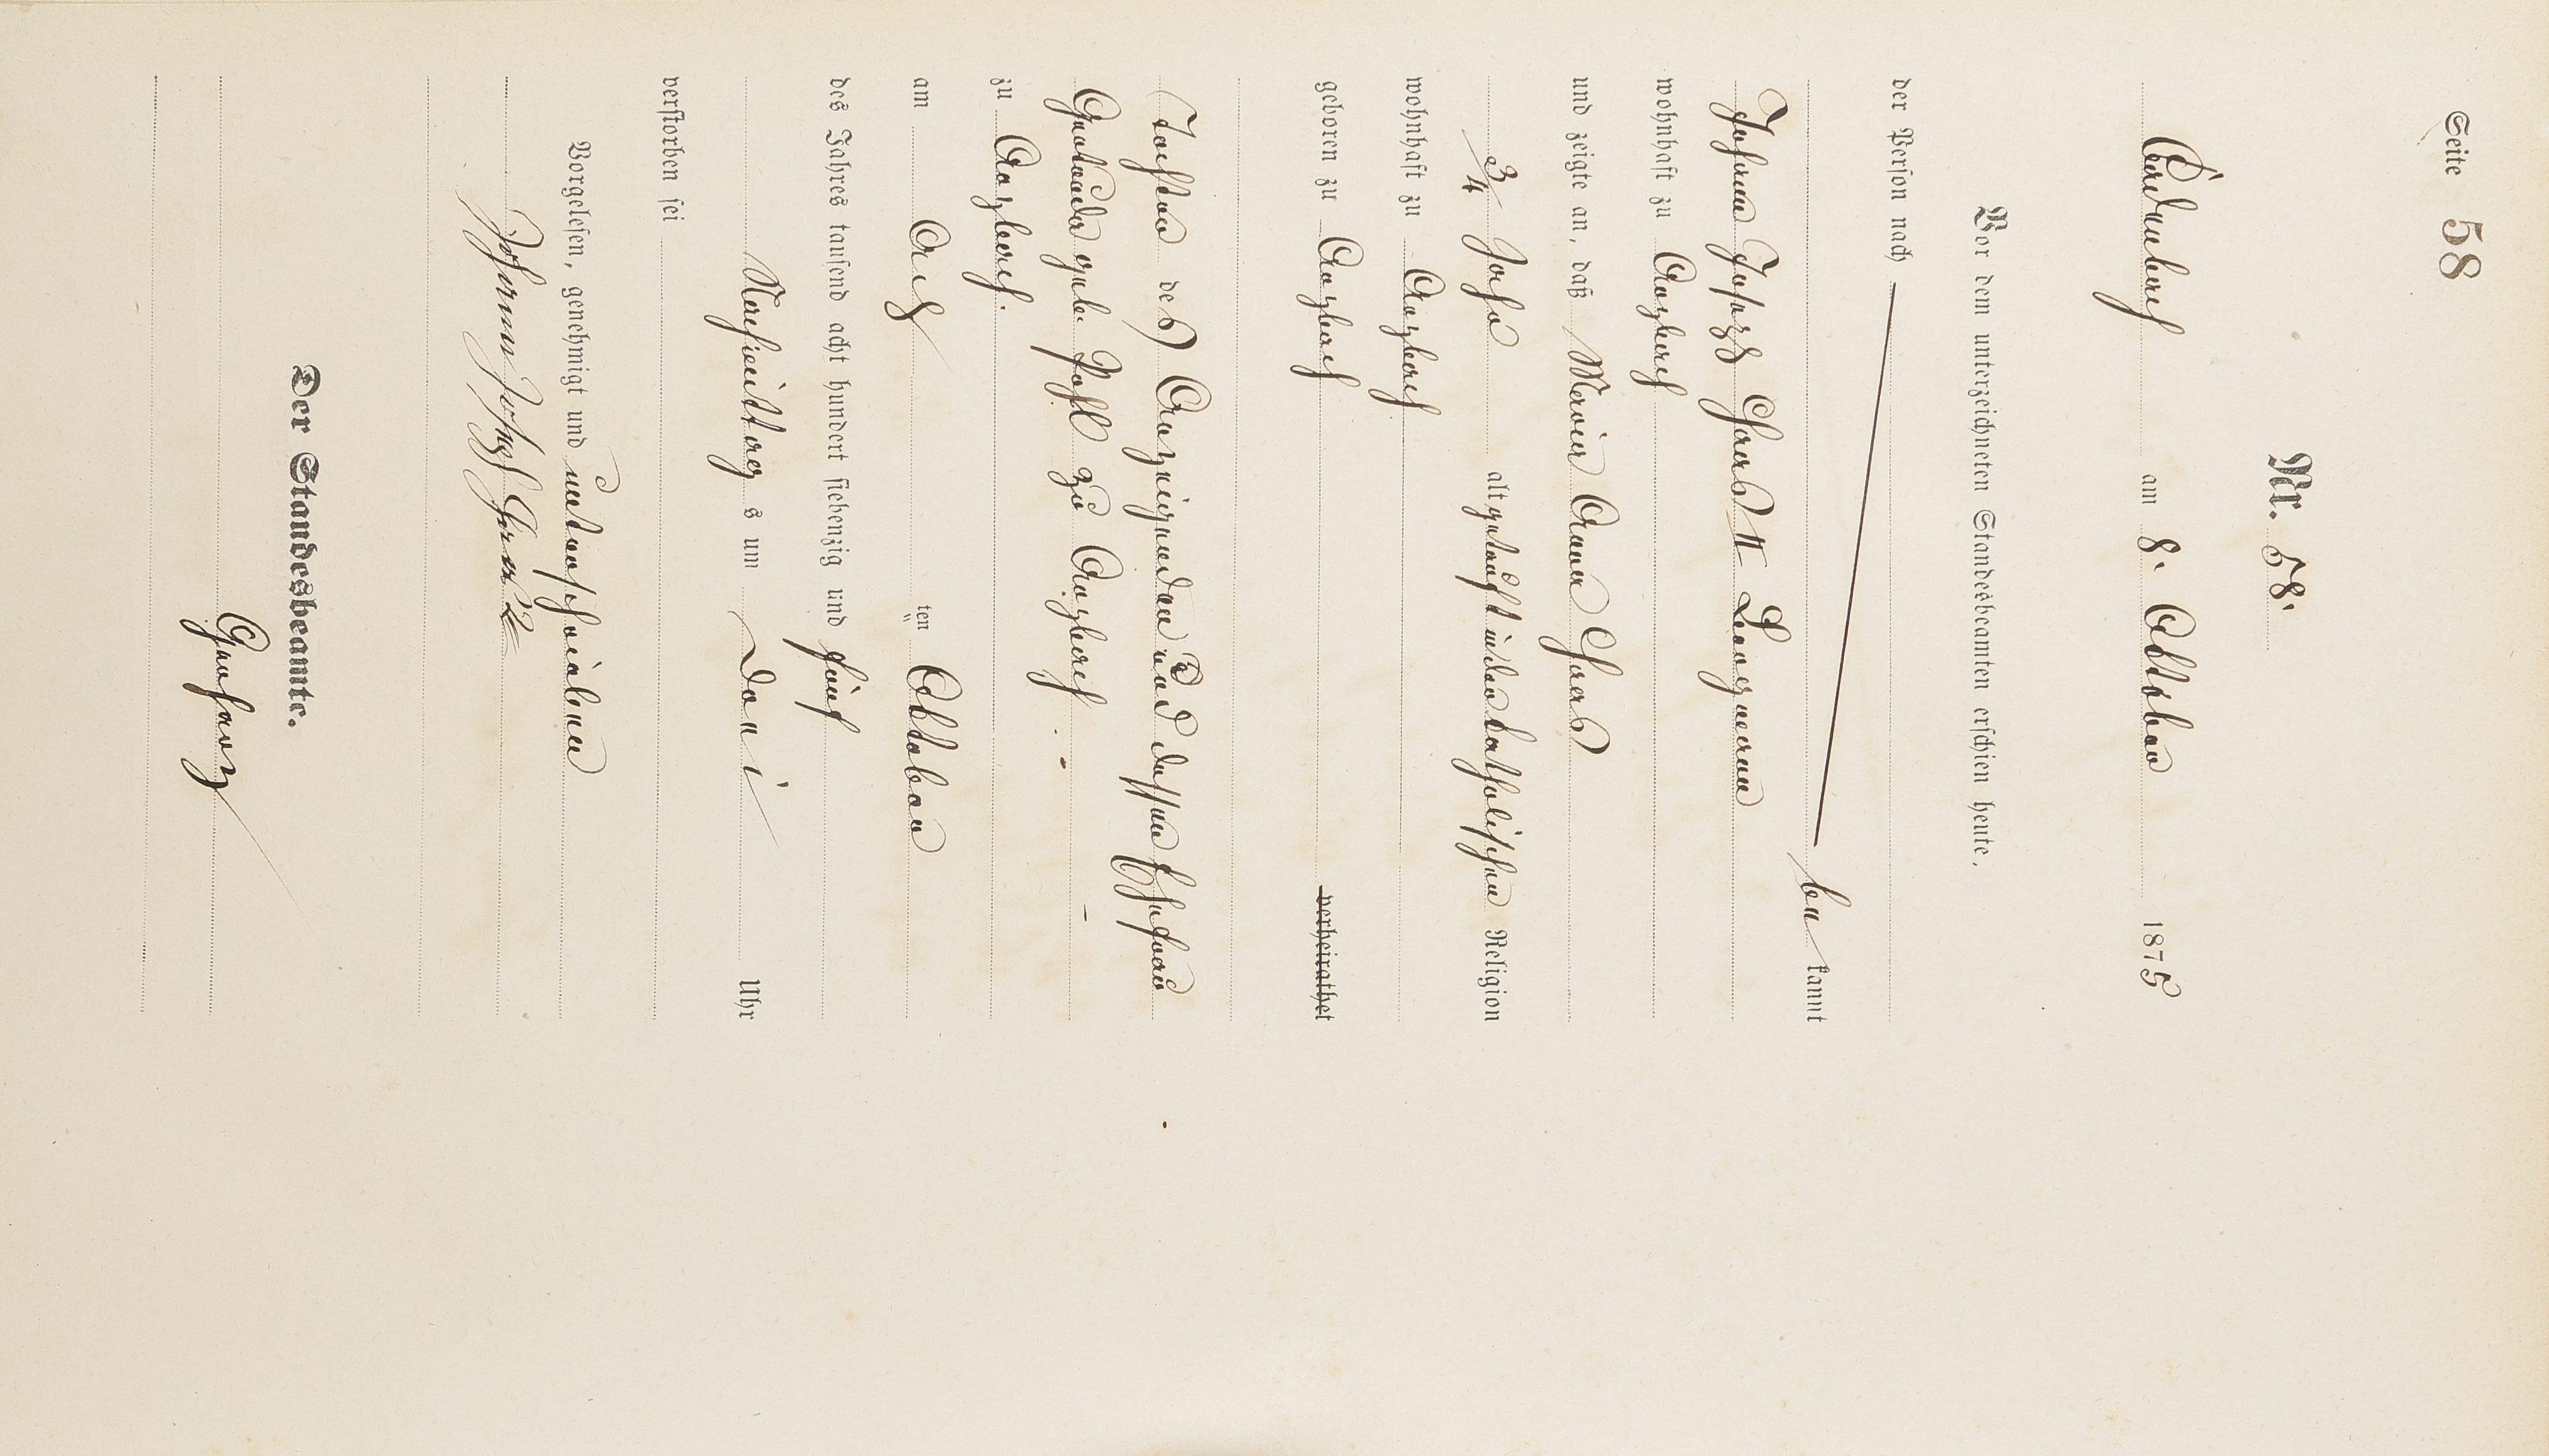 Seite 58
Nr. 58.
am 8. October 1875
Vor dem unterzeichneten Standesbeamten erschien heute,
der Person nach
be kannt
Johann Joseph Haas II Bergmann
wohnhaft zu Anzbach
und zeigte an, daß Maria Anna Haas
3/4 Jahr alt getauft in der katholischen Religion
wohnhaft zu Anzbach
geboren zu Anzbach verheirathet
Tochter des Anzeigenden und dessen Ehefrau
Gertrude geb. Pohl zu Anzbach
zu Anzbach.
am Acht ten October
des Jahres tausend acht hundert siebenzig und fünf
Nachmittag s um drei Uhr
verstorben sei
Vorgelesen, genehmigt und unterschrieben
Johann Joseph Haas 2
Der Standesbeamte.